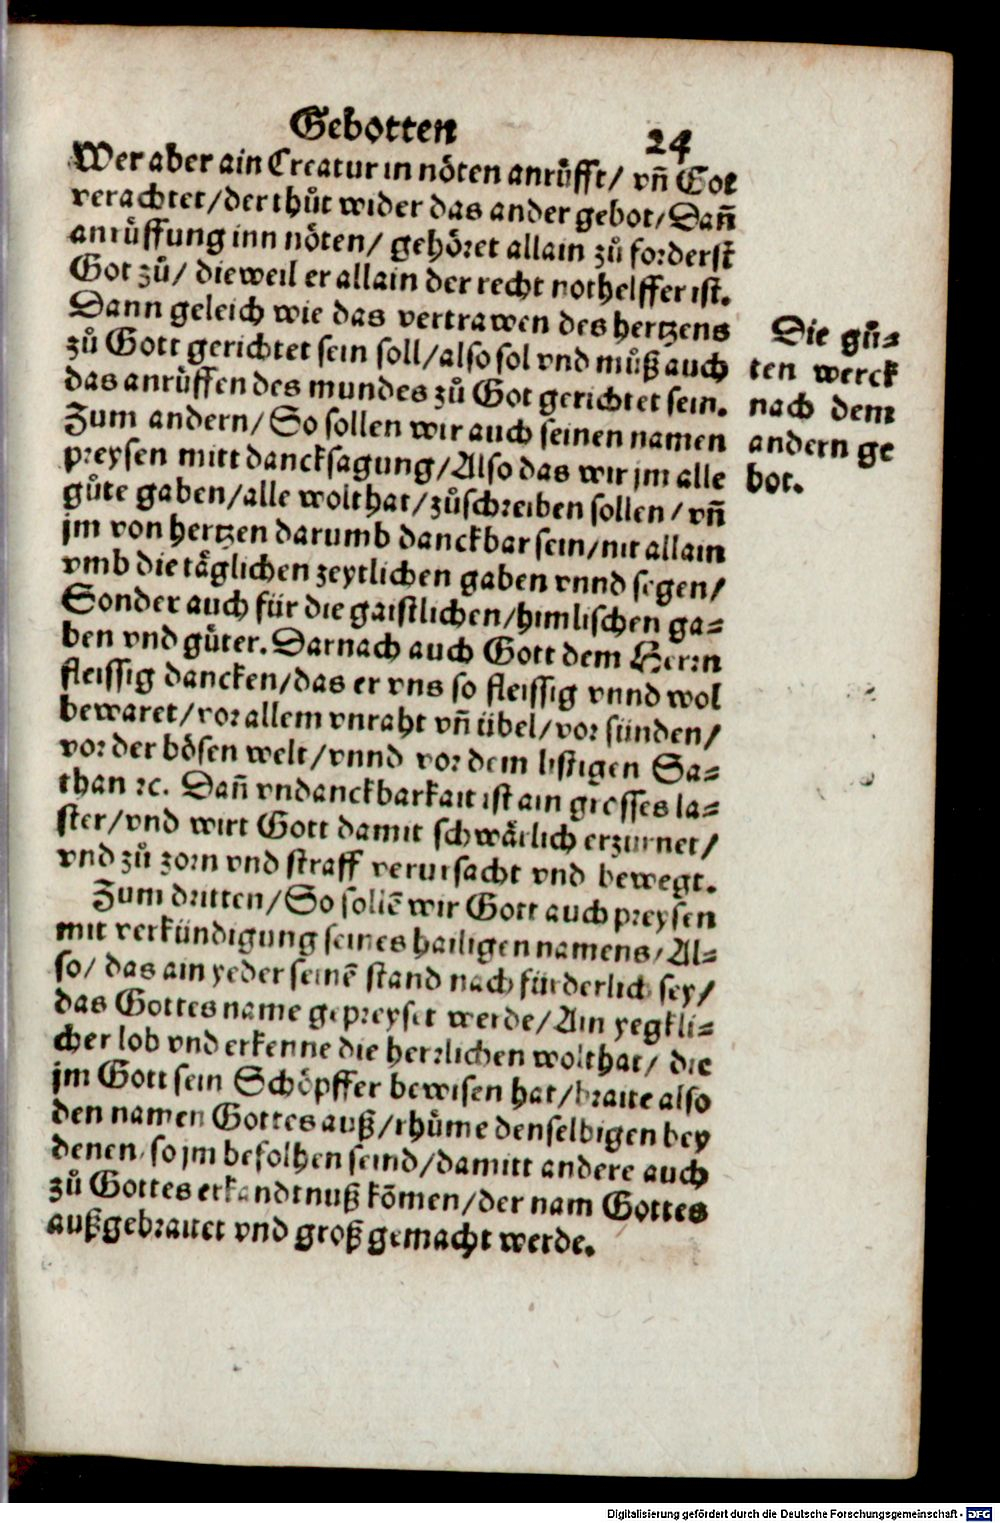 Gebotten 24
Wer aber ain Creatur in nöten anrůfft/ vñ Got
verachtet/der thůt wider das ander gebot/Dañ
anrůffung inn nöten/ gehöret allain zů forderst
Got zů/ dieweil er allain der recht nothelffer ist.
Dann geleich wie das vertrawen des hertzens
zů Gott gerichtet sein soll/also sol vnd můß auch
das anrůffen des mundes zů Got gerichtet sein.
Zum andern/ So sollen wir auch seinen namen
preysen mitt dancksagung/Also das wir jm alle
gůte gaben/alle wolthat/zůschreiben sollen/ vñ
jm von hertzen darumb danckbar sein/nit allain
vmb die täglichen zeytlichen gaben vnnd segen/
Sonder auch für die gaistlichen/himlischen ga⸗
ben vnd gůter. Darnach auch Gott dem Herrn
fleissig dancken/das er vns so fleissig vnnd wol
bewaret/vor allem vnraht vñ übel/vor sünden/
vor der bösen welt/vnnd vor dem listigen Sa⸗
than ꝛc. Dañ vndanckbarkait ist ain grosses la⸗
ster/vnd wirt Gott damit schwärlich erzürnet/
vnd zů zorn vnd straff verursacht vnd bewegt.
Zum dritten/So sollē wir Gott auch preysen
mit verkündigung seines hailigen namens/Al⸗
so/ das ain yeder seinē stand nach fürderlich sey/
das Gottes name gepreyset werde/Ain yegkli⸗
cher lob vnd erkenne die herrlichen wolthat/ die
jm Gott sein Schöpffer bewisen hat/braite also
den namen Gottes auß/rhůme denselbigen bey
denen so jm befolhen seind/damitt andere auch
zů Gottes erkandtnuß kōmen/der nam Gottes
außgebraitet vnd groß gemacht werde.
Die gů⸗
ten werck
nach dem
andern ge
bot.
Digitalisierung gefördert durch die Deutsche Forschungsgemeinschaft - DFG